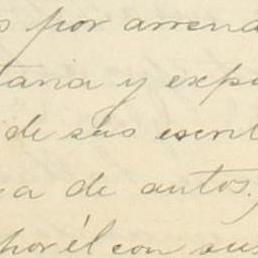 s por arrend
tana y expo
de sus escrit
a de autos.
por él con sus